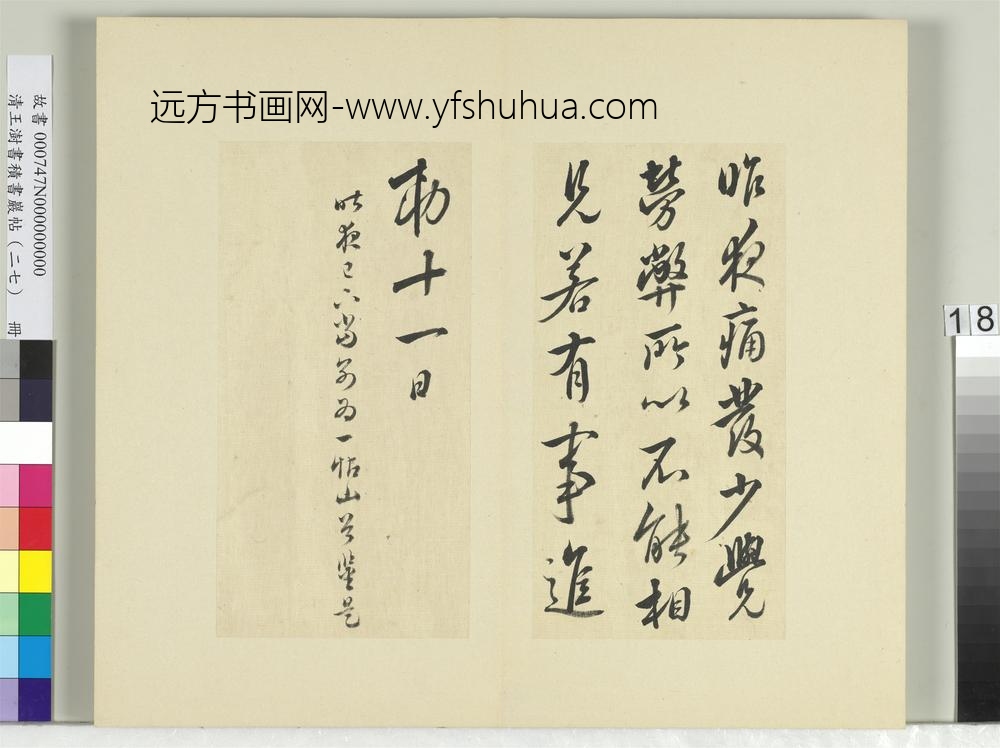 远方书画网-www.yfshuhua.com
昨夜痛發少覺
勞弊所以不能相
見若有事進
勅十一日
昨夜已下當別為一帖山谷鑒是
故書 000747N000000000
清王澍書積書巖帖（二七） 冊
18